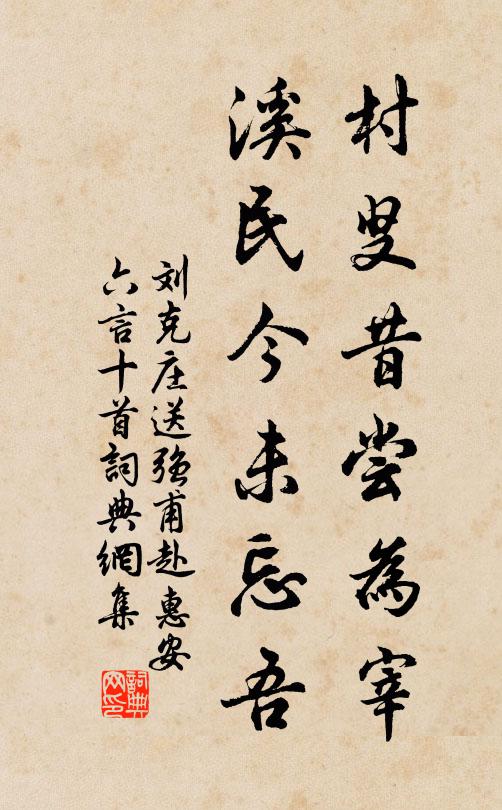 村叟昔尝為宰
溪民今未忘吾
刘克庄送强甫赴惠安
六言十首詞典網集
詞典网印